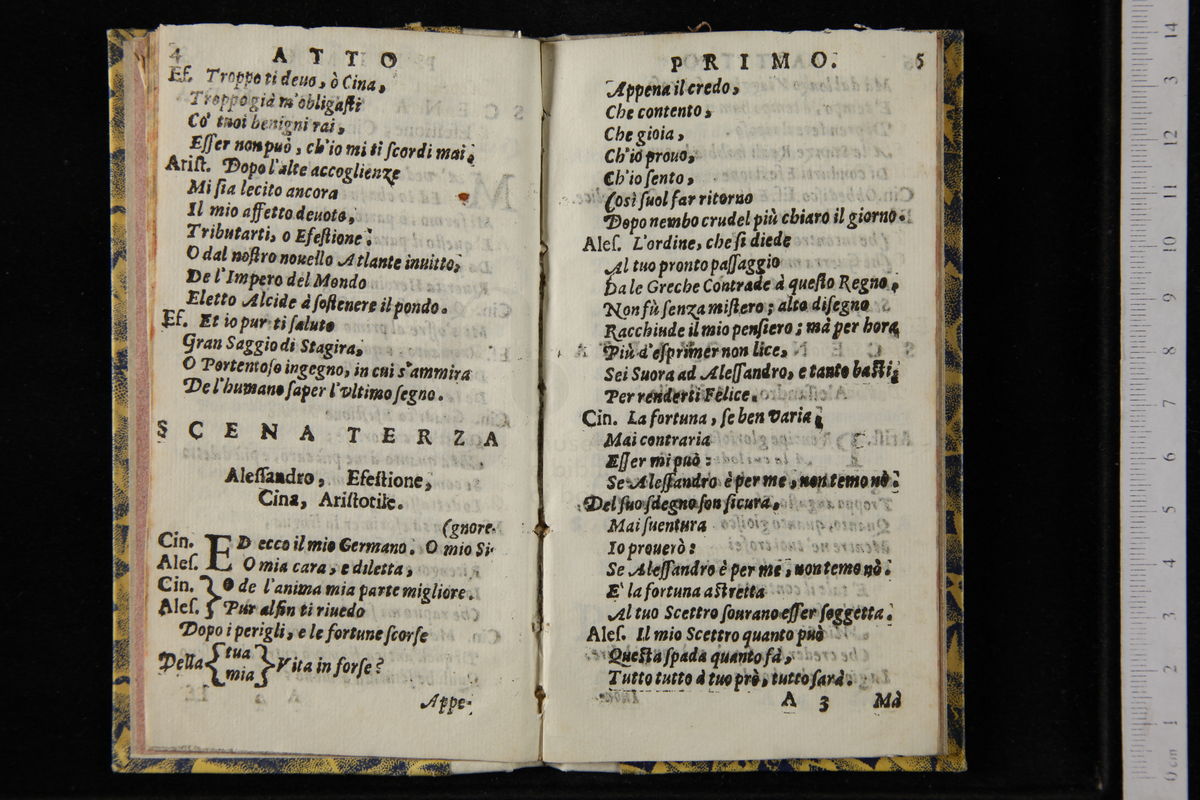 4 ATTO
Ef. Troppo ti deuo, ò Cina,
Troppo già m'obligasti
Co' tuoi benigni rai,
Esser non può, ch'io mi ti scordi mai.
Arist. Dopo l'alte accoglienze
Mi sia lecito ancora
Il mio affetto deuoto,
Tributarti, o Efestione:
O dal nostro nouello Atlante inuitto,
De l'Impero del Mondo
Eletto Alcide à sostenere il pondo.
Ef. Et io pur ti saluto
Gran Saggio di Stagira,
O Portentoso ingegno, in cui s'ammira
De l'humano saper l'vltimo segno.
SCENA TERZA
Alessandro, Efestione,
Cina, Aristotile.
(gnore.
Cin. ED ecco il mio Germano. O mio Si-
Ales. O mia cara, e diletta,
Cin. } O de l'anima mia parte migliore.
Ales. } Pur alfin ti riuedo
Dopo i perigli, e le fortune scorse
Della { tua } Vita in forse?
{ mia }
Appe-
PRIMO. 5
Appena il credo,
Che contento,
Che gioia,
Ch'io prouo,
Ch'io sento,
Così suol far ritorno
Dopo nembo crudel più chiaro il giorno.
Ales. L'ordine, che si diede
Al tuo pronto passaggio
Da le Greche Contrade à questo Regno,
Non fù senza mistero; alto disegno
Racchiude il mio pensiero; mà per hora
Più d'esprimer non lice,
Sei Suora ad Alessandro, e tanto basti,
Per renderti Felice.
Cin. La fortuna, se ben varia,
Mai contraria
Esser mi può:
Se Alessandro è per me, non temo nò.
Del suo sdegno son sicura,
Mai suentura
Io prouerò:
Se Alessandro è per me, non temo nò.
E' la fortuna astretta
Al tuo Scettro sourano esser soggetta.
Ales. Il mio Scettro quanto può
Questa spada quanto fà,
Tutto tutto à tuo prò, tutto sarà.
A 3 Mà
0 cm 1 2 3 4 5 6 7 8 9 10 11 12 13 14